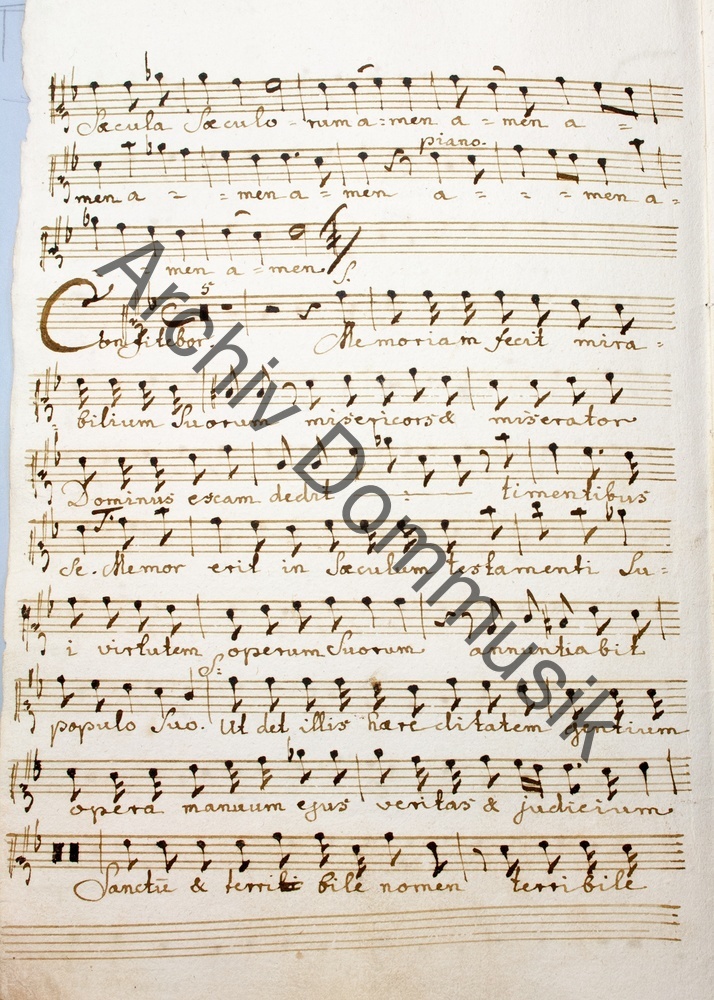 Sæcula Sæculo - rum a = men a - men a =
piano.
men a - = men a = men a = = = men a =
= men a = men S.
Confitebor. 5 Memoriam fecit mira =
bilium Suorum misericors & miserator
Dominus escam dedit timentibus
Se. Memor erit in Sæculum testamenti Su =
i virtutem operum Suorum annuntiabit
S:
populo Suo. Ut det illis hæreditatem gentium
opera manuum ejus veritas & judicium
Sanctū & terribile nomen terribile
Archiv Dommusik